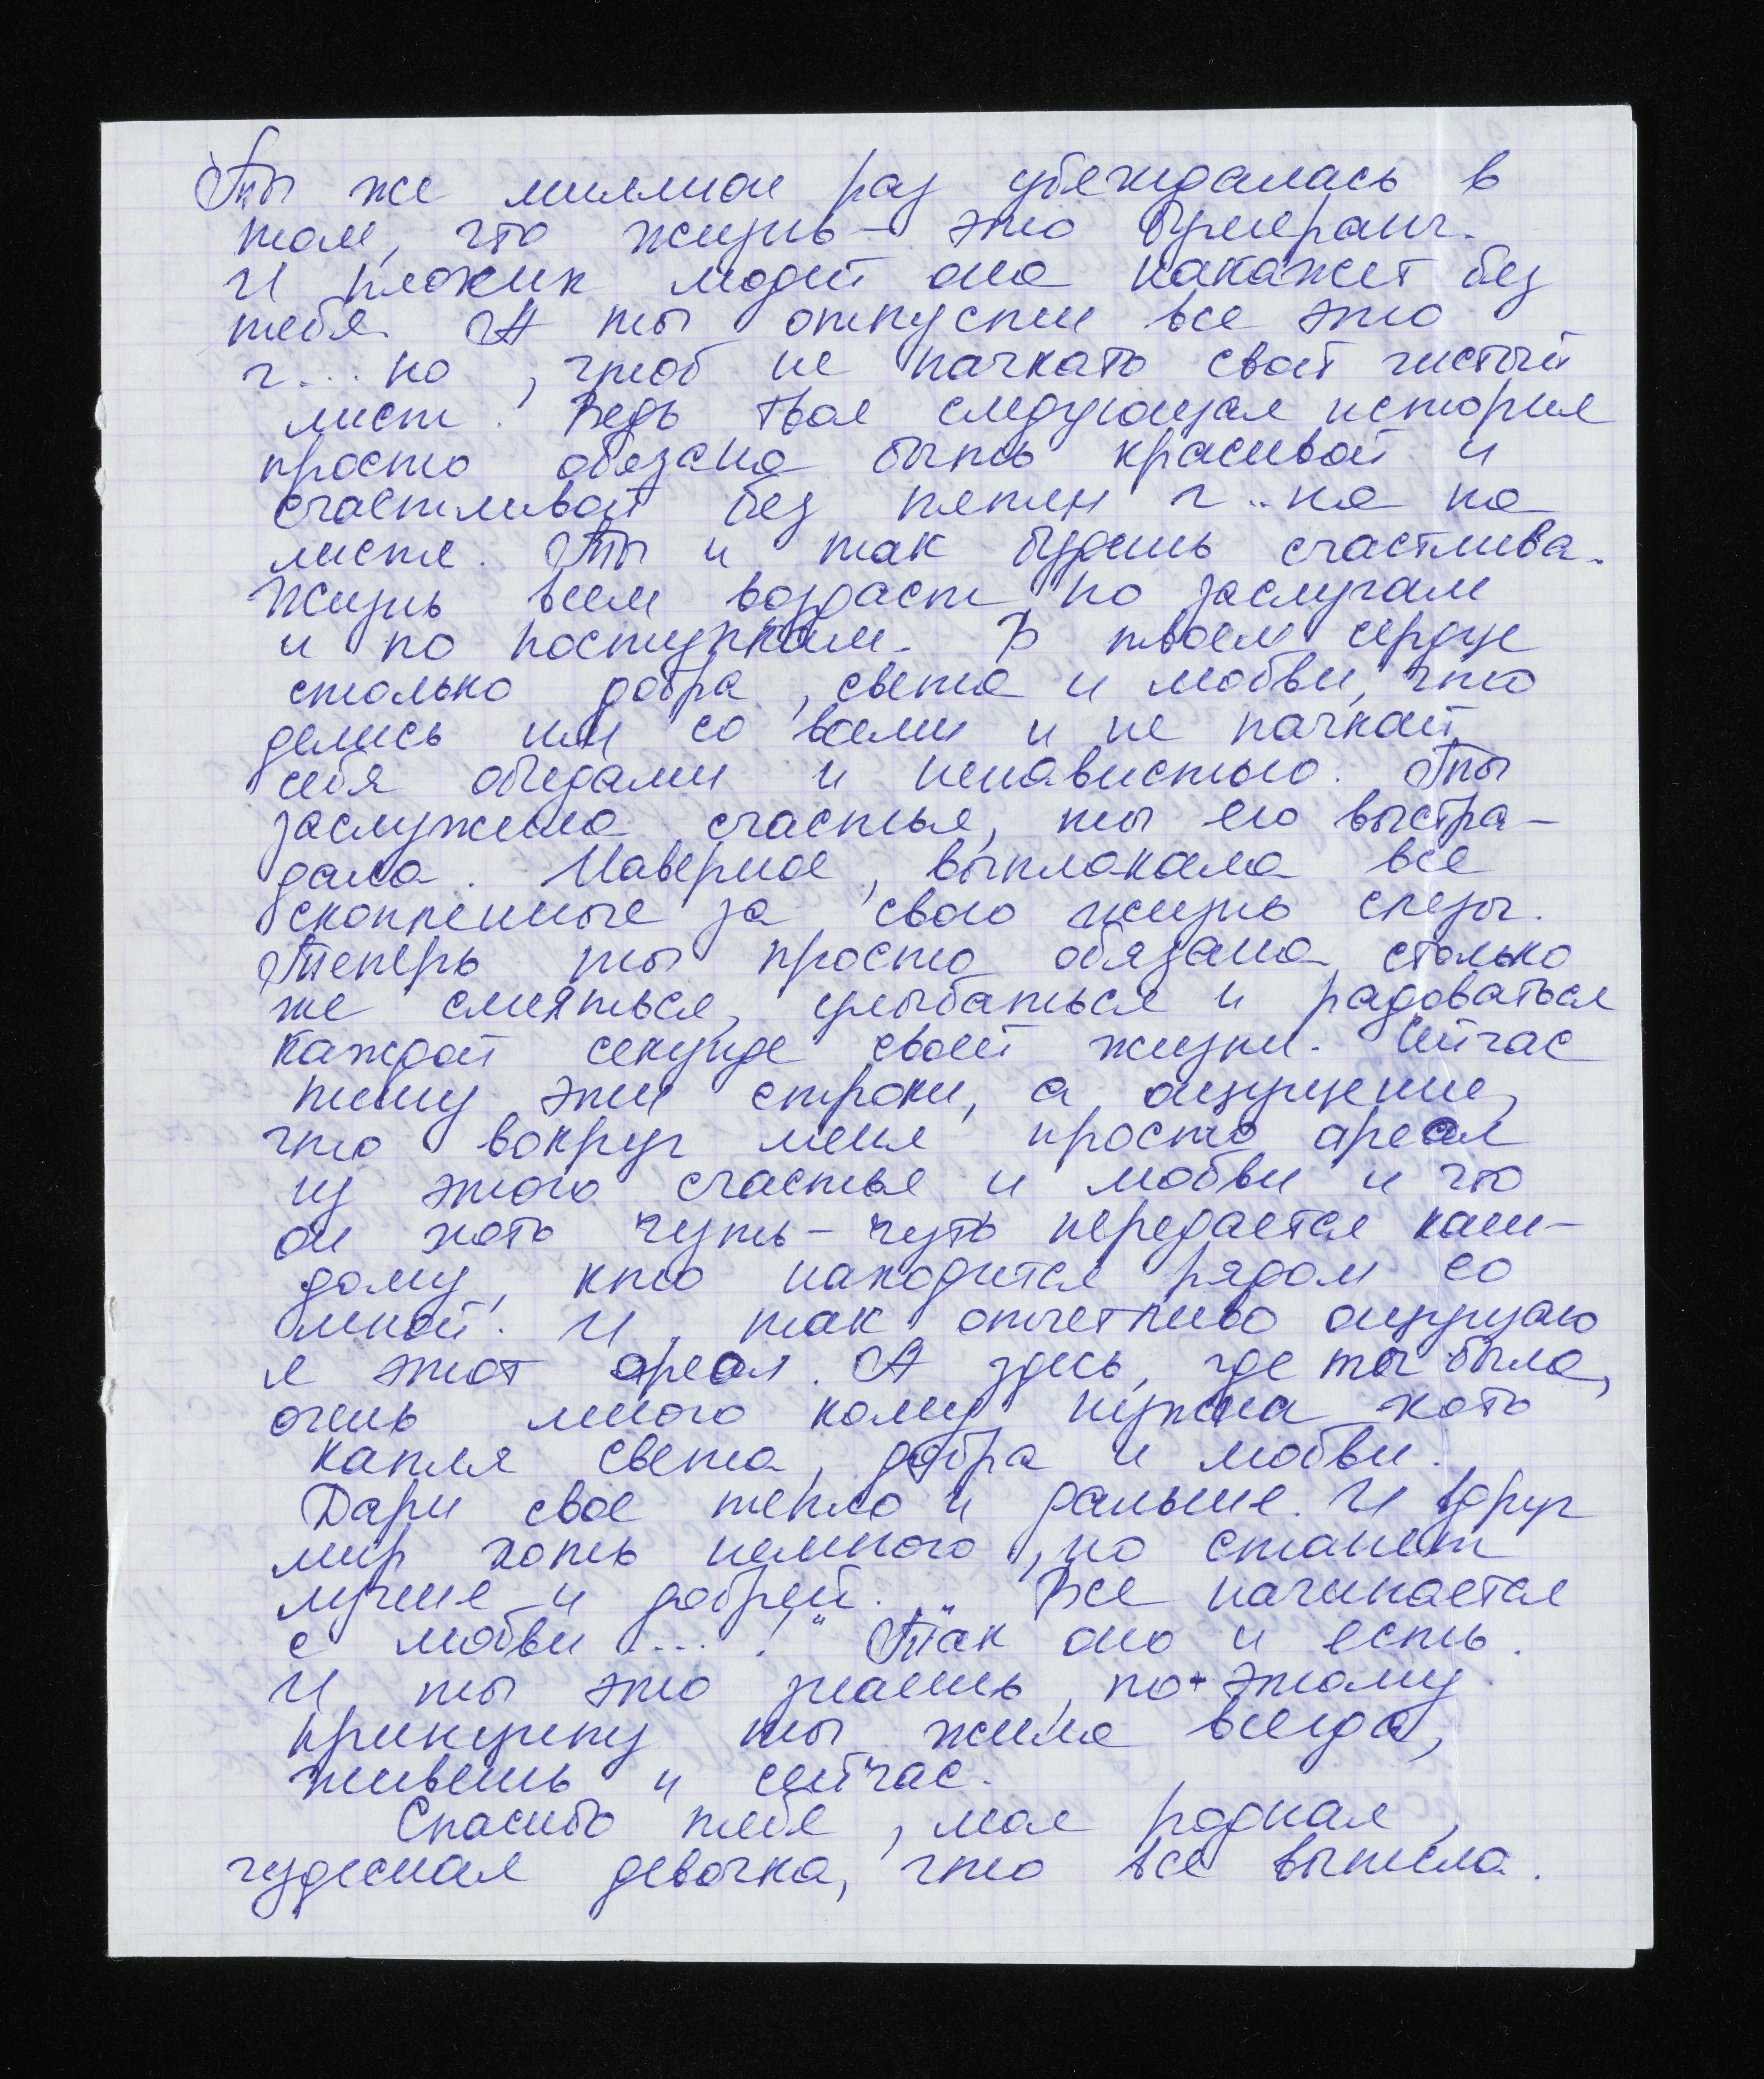 Ты же миллион раз убеждалась в
том, что жизнь – это бумеранг.
И плохих людей она накажет без
тебя. А ты отпусти все это
г...но, чтоб не пачкать свой чистый
лист. Ведь твоя следующая история
просто обязана быть красивой и
счастливой без пятен г..на на
листе. Ты и так будешь счастлива.
Жизнь всем воздаст по заслугам
и по поступкам. В твоем сердце
столько добра, света и любви, что
делись им со всеми и не пачкай
себя обидами и ненавистью. Ты
заслужила счастья, ты его выстра-
дала. Наверное, выплакала все
скопленные за свою жизнь слезы.
Теперь ты просто обязана столько
же смеяться, улыбаться и радоваться
каждой секунде своей жизни. Сейчас
пишу эти строки, а ощущение,
что вокруг меня просто ареал
из этого счастья и любви и что
он хоть чуть-чуть передается каж-
дому, кто находится рядом со
мной. И, так отчетливо ощущаю
я этот ареол. А здесь, где ты была,
очень много кому нужна хоть
капля света, добра и любви.
Дари свое тепло и дальше. И вдруг
мир хоть немного, но станет
лучше и добрей. „Все начинается
с любви ...!" Так оно и есть.
И ты это знаешь, по этому
принципу ты жила всегда,
живешь и сейчас.
Спасибо тебе, моя родная,
чудесная девочка, что все вынесла.